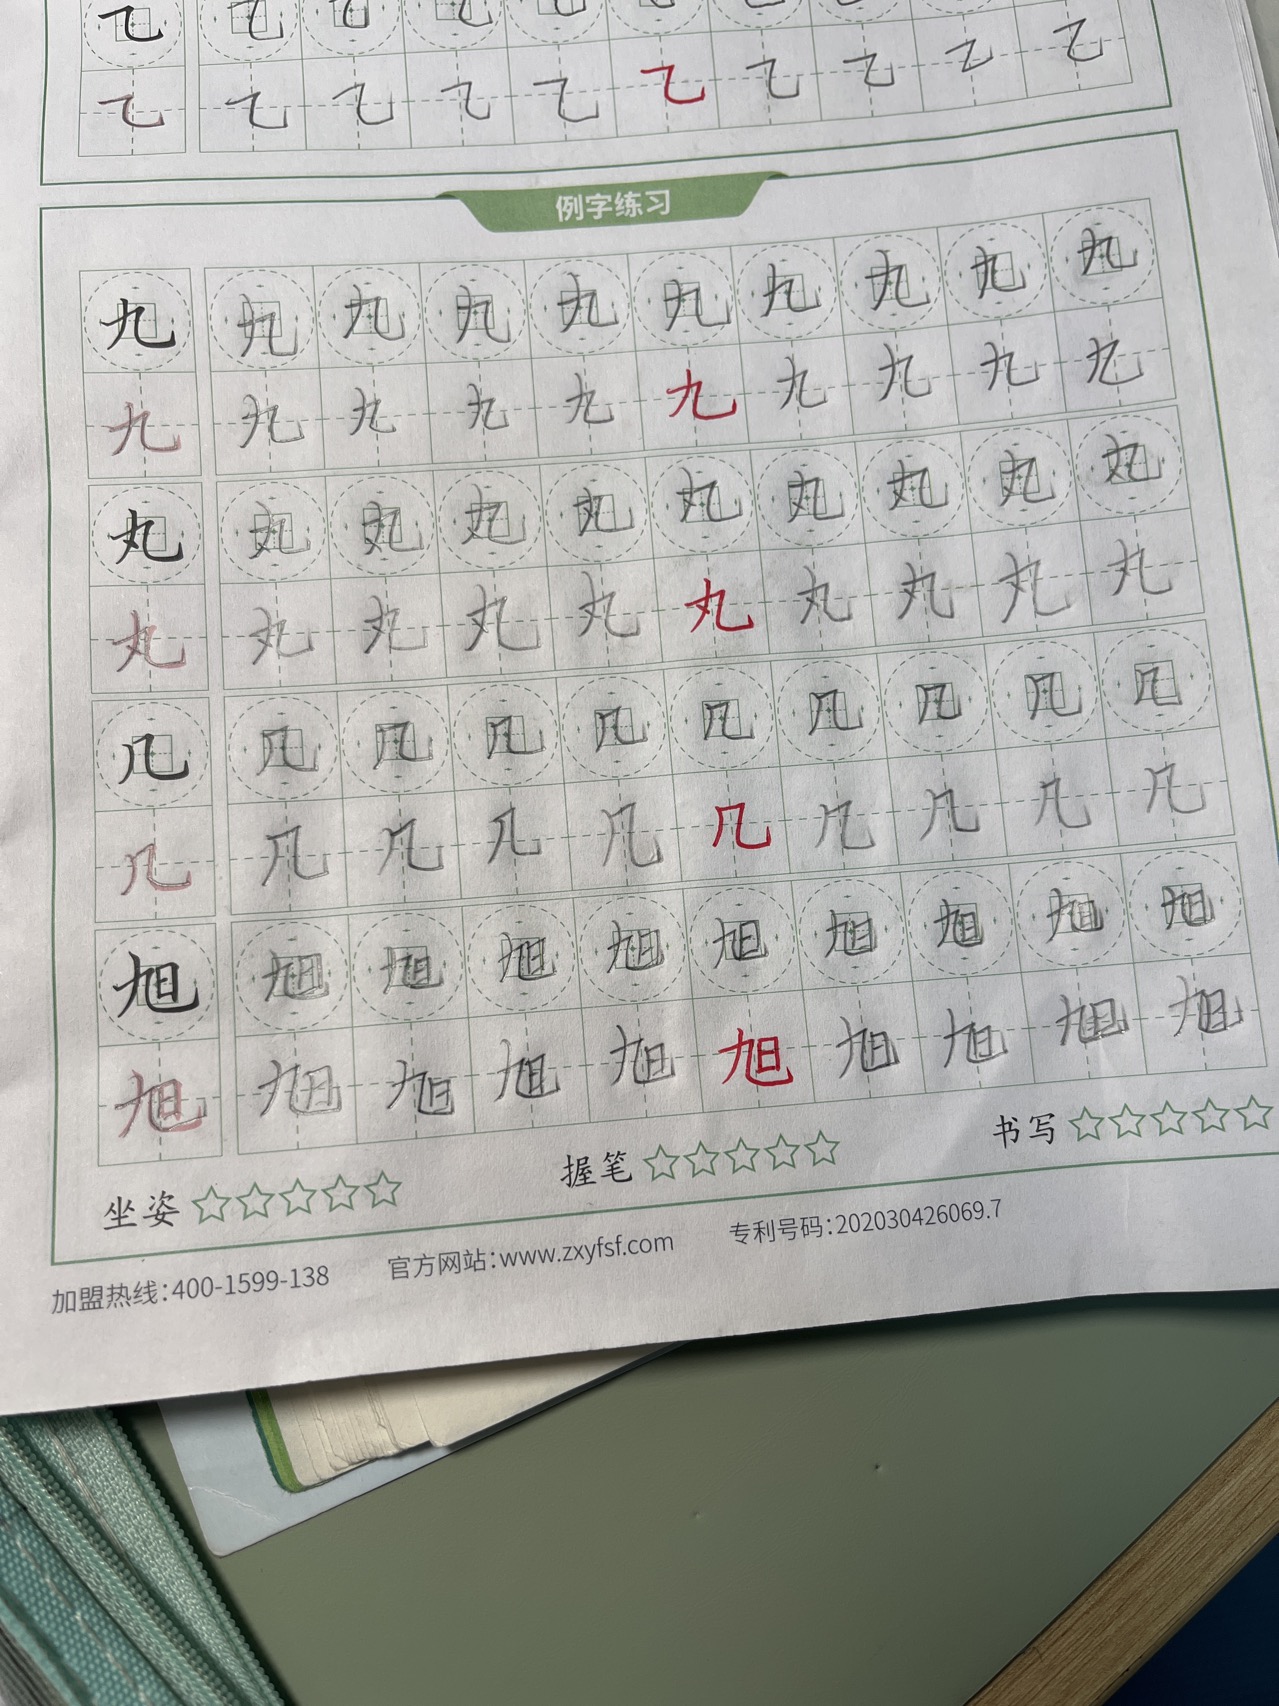 乙 乙 乙 乙 乙 乙 乙 乙 乙
乙 乙 乙 乙 乙 乙 乙 乙 乙 乙
例字练习
九 九 九 九 九 九 九 九 九 九
九 九 九 九 九 九 九 九 九 九
丸 丸 丸 丸 丸 丸 丸 丸 丸 丸
丸 丸 丸 丸 丸 丸 丸 丸 丸 丸
几 几 几 几 几 几 几 几 几 几
几 几 几 几 几 几 几 几 几 几
旭 旭 旭 旭 旭 旭 旭 旭 旭 旭
旭 旭 旭 旭 旭 旭 旭 旭 旭 旭
坐姿 握笔 书写
加盟热线:400-1599-138 官方网站:www.zxyfsf.com 专利号码:202030426069.7